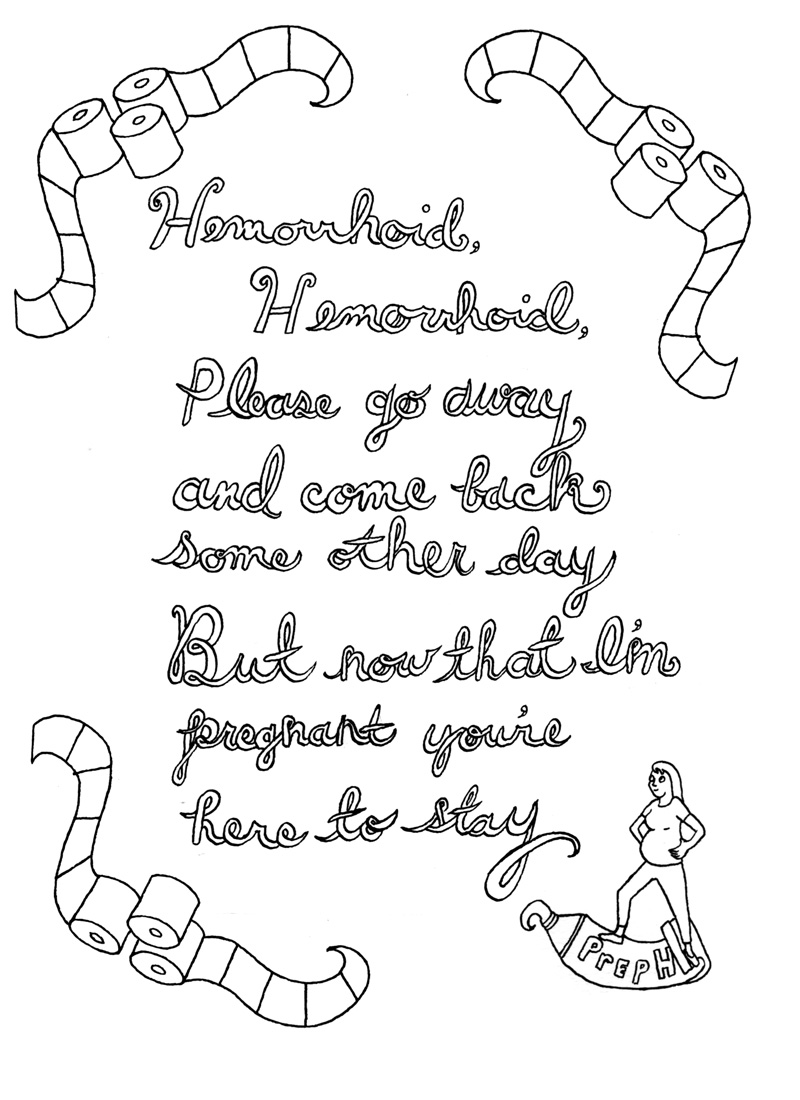 Hemorrhoid,
Hemorrhoid,
Please go away
and come back
some other day
But now that I'm
pregnant you're
here to stay
PrEP H